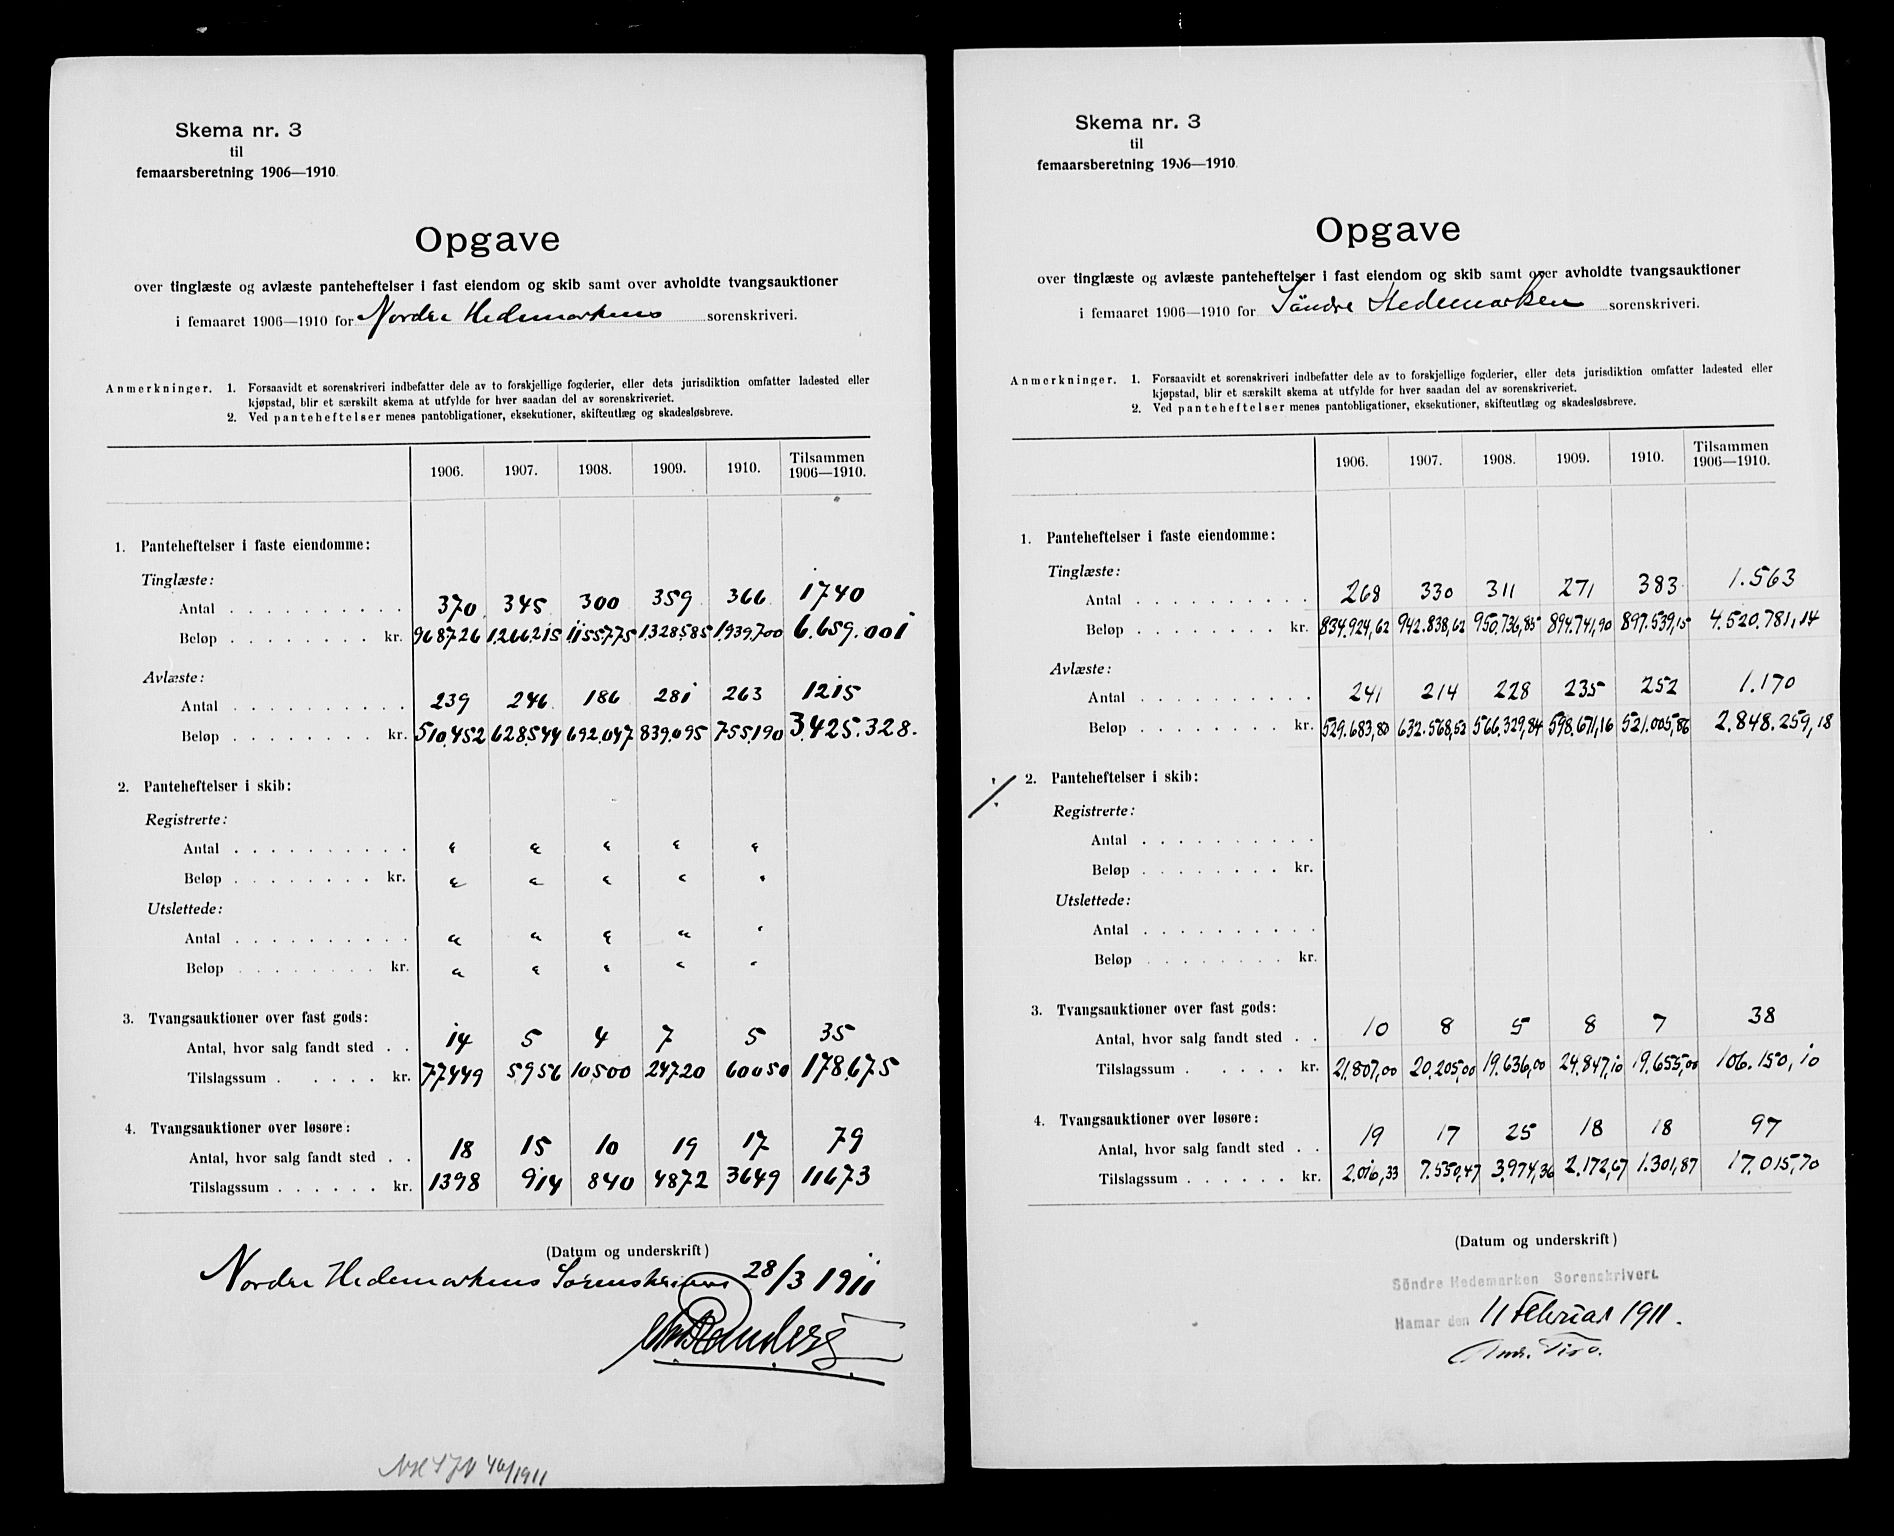 Skema nr. 3
til
femaarsberetning 1906—1910.
Opgave
over tinglæste og avlæste panteheftelser i fast eiendom og skib samt over avholdte tvangsauktioner
i femaaret 1906—1910 for Nordre Hedemarkens sorenskriveri.
Anmerkninger. 1. Forsaavidt et sorenskriveri indbefatter dele av to forskjellige fogderier, eller dets jurisdiktion omfatter ladested eller
kjøpstad, blir et særskilt skema at utfylde for hver saadan del av sorenskriveriet.
2. Ved panteheftelser menes pantobligationer, eksekutioner, skifteutlæg og skadesløsbreve.
1906. 1907. 1908. 1909. 1910. Tilsammen 1906—1910.
1. Panteheftelser i faste eiendomme:
Tinglæste:
Antal . . . . . . . . . . 370 345 300 359 366 1740
Beløp . . . . . . . . kr. 968726 1.266.215 1155775 1328585 1.939.700 6.659.001
Avlæste:
Antal . . . . . . . . . . 239 246 186 281 263 1215
Beløp . . . . . . . . kr. 510.452 628.544 692.047 839.095 755.190 3.425.328.
2. Panteheftelser i skib:
Registrerte:
Antal . . . . . . . . . . " " " " "
Beløp . . . . . . . . kr. " " " " "
Utslettede:
Antal . . . . . . . . . . " " " " "
Beløp . . . . . . . . kr. " " " " "
3. Tvangsauktioner over fast gods:
Antal, hvor salg fandt sted . . 14 5 4 7 5 35
Tilslagssum . . . . . . kr. 77449 5956 10,500 24720 60050 178.675
4. Tvangsauktioner over løsøre:
Antal, hvor salg fandt sted . . 18 15 10 19 17 79
Tilslagssum . . . . . . kr. 1398 914 840 4872 3649 11673
(Datum og underskrift)
Nordre Hedemarkens Sorenskriveri 28/3 1911
46/1911
Skema nr. 3
til
femaarsberetning 1906—1910.
Opgave
over tinglæste og avlæste panteheftelser i fast eiendom og skib samt over avholdte tvangsauktioner
i femaaret 1906—1910 for Söndre Hedemarken sorenskriveri.
Anmerkninger. 1. Forsaavidt et sorenskriveri indbefatter dele av to forskjellige fogderier, eller dets jurisdiktion omfatter ladested eller
kjøpstad, blir et særskilt skema at utfylde for hver saadan del av sorenskriveriet.
2. Ved panteheftelser menes pantobligationer, eksekutioner, skifteutlæg og skadesløsbreve.
1906. 1907. 1908. 1909. 1910. Tilsammen 1906—1910.
1. Panteheftelser i faste eiendomme:
Tinglæste:
Antal . . . . . . . . . . 268 330 311 271 383 1.563
Beløp . . . . . . . . kr. 834.924,62 942.838,62 950.736,85 894.741,90 897.539,15 4.520.781,14
Avlæste:
Antal . . . . . . . . . . 241 214 228 235 252 1.170
Beløp . . . . . . . . kr. 529.683,80 632.568,52 566.329,84 598.671,16 521.005,86 2.848.259,18
⁒ 2. Panteheftelser i skib:
Registrerte:
Antal . . . . . . . . . .
Beløp . . . . . . . . kr.
Utslettede:
Antal . . . . . . . . . .
Beløp . . . . . . . . kr.
3. Tvangsauktioner over fast gods:
Antal, hvor salg fandt sted . . 10 8 5 8 7 38
Tilslagssum . . . . . . kr. 21.807,00 20.205,00 19.636,00 24.847,10 19.655,00 106.150,10
4. Tvangsauktioner over løsøre:
Antal, hvor salg fandt sted . . 19 17 25 18 18 97
Tilslagssum . . . . . . kr. 2.016,33 7.550,47 3.974,36 2.172,67 1.301,87 17.015,70
(Datum og underskrift)
Söndre Hedemarken Sorenskriveri.
Hamar den 11 Februar 1911.